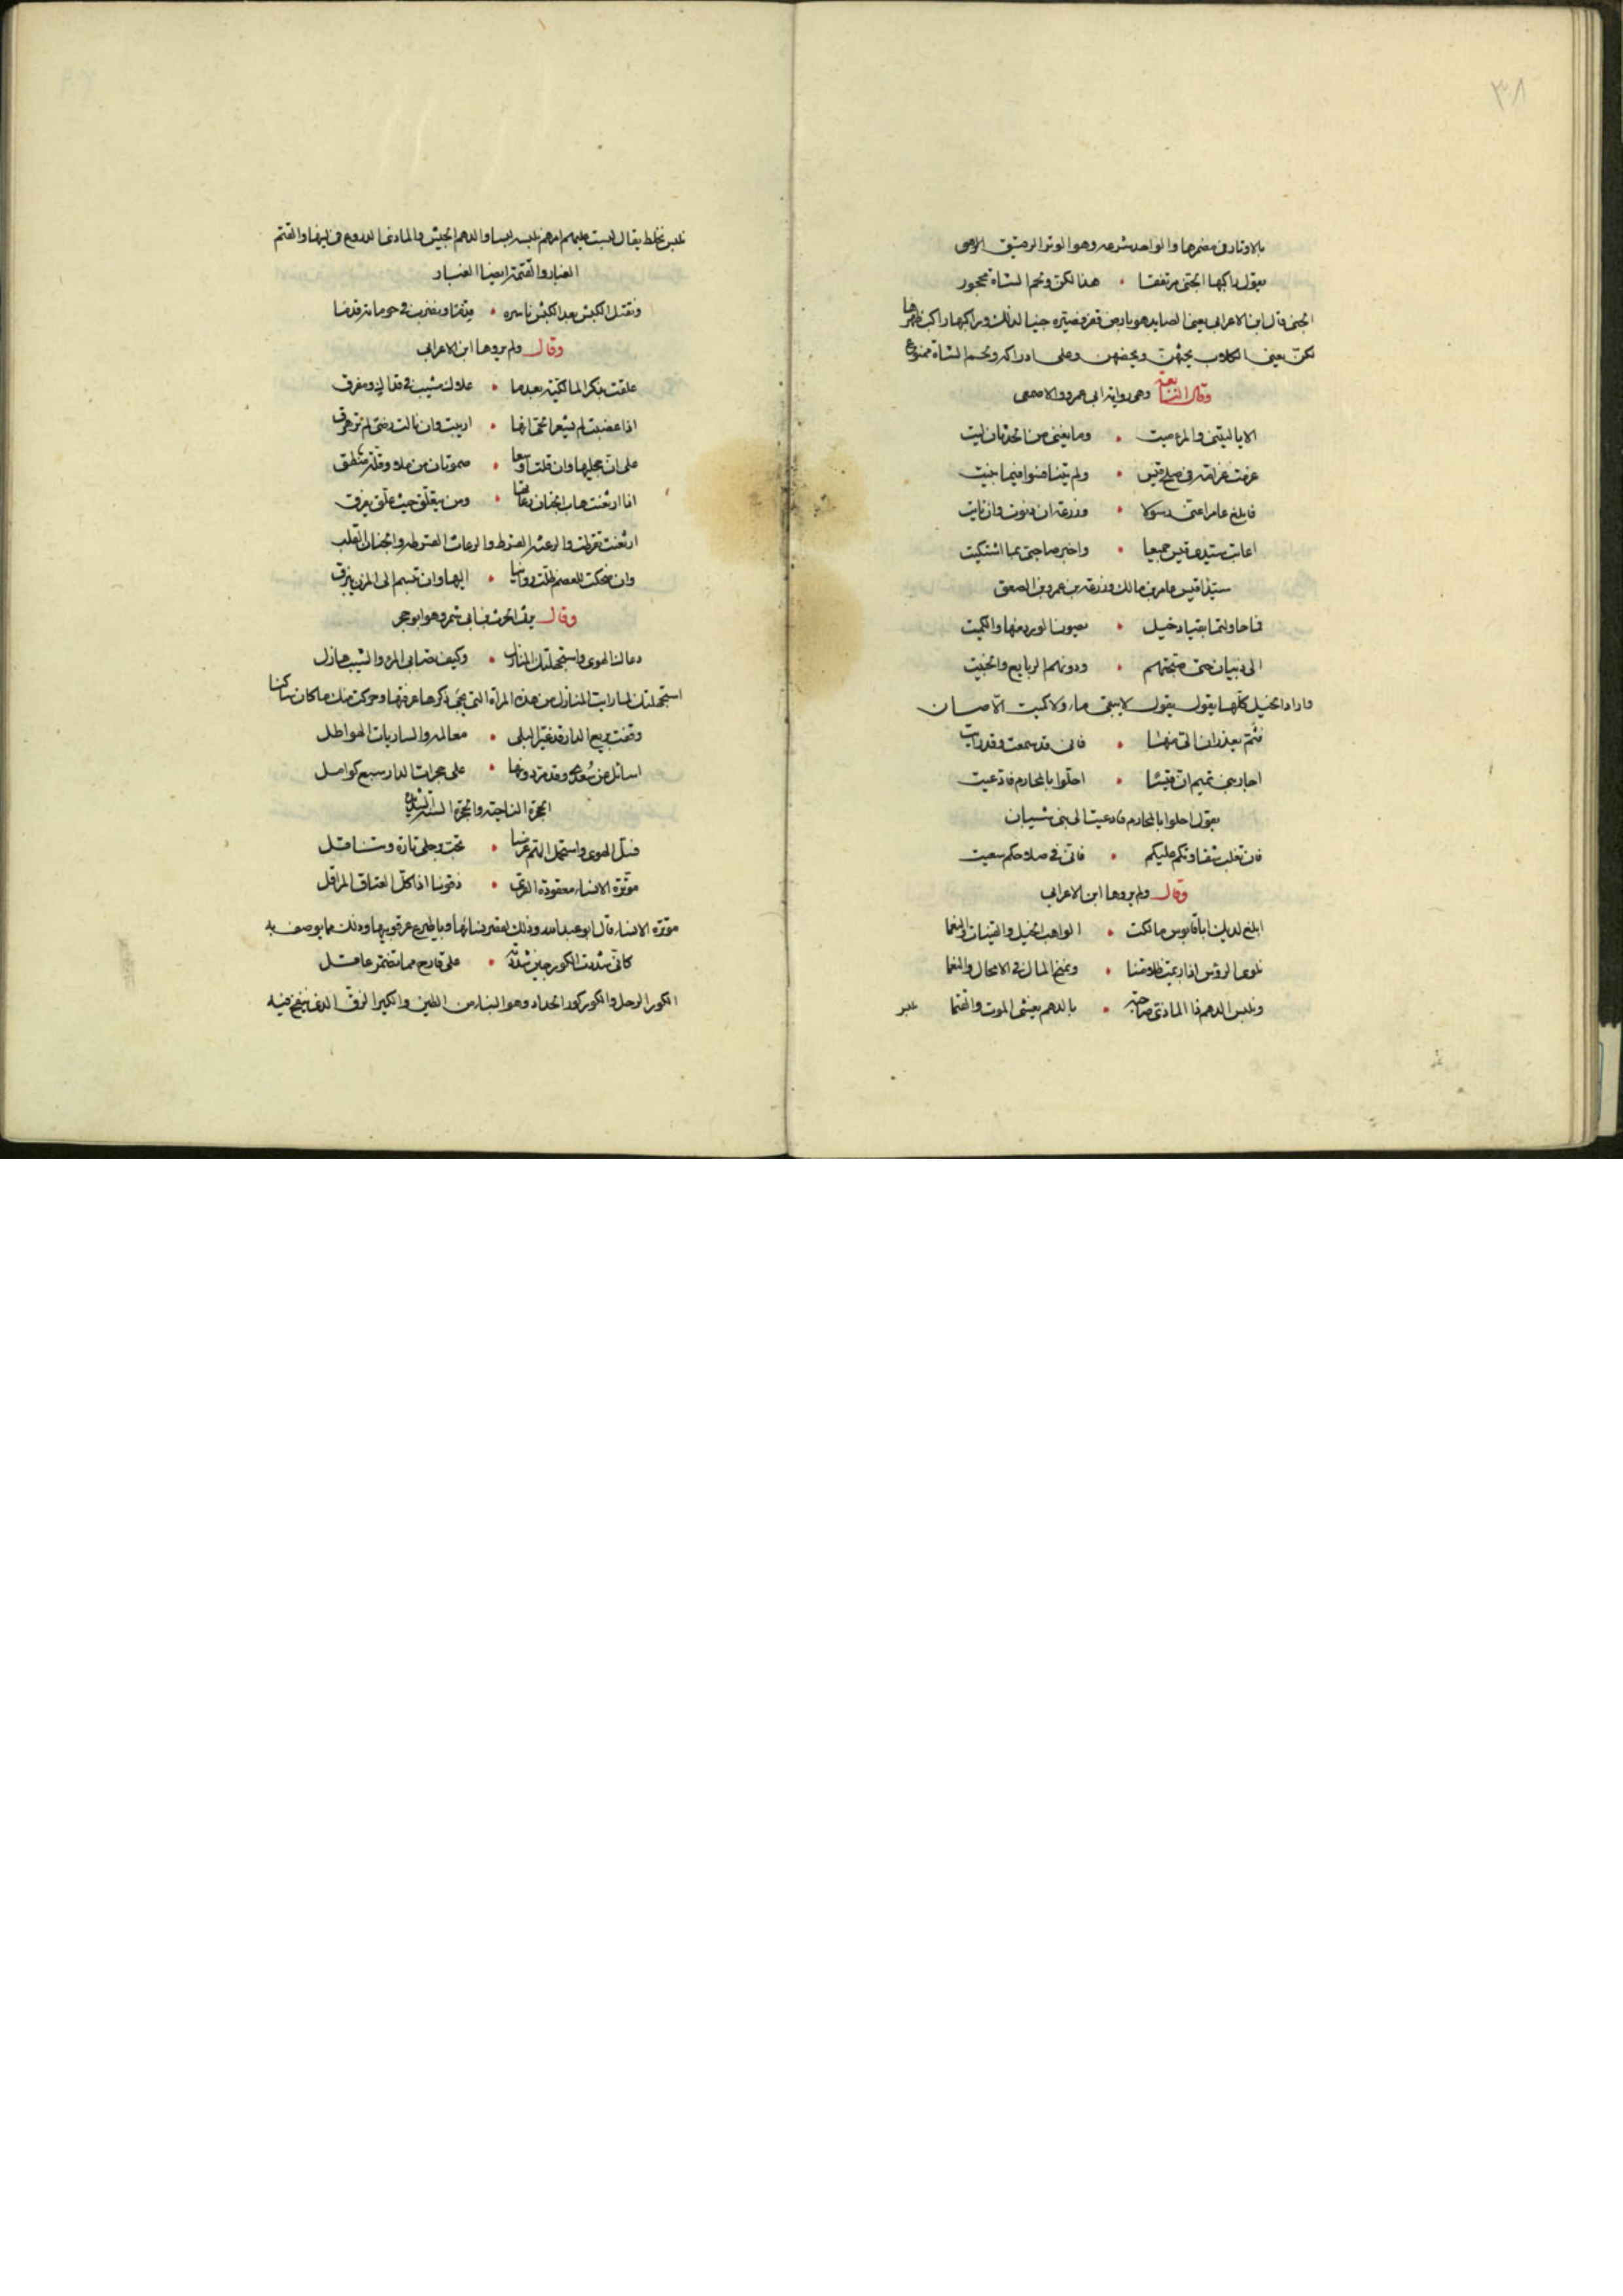 ٣٨
بالاوتار في ضمرها والواحد شرعه وهو الوتر الرقيق الاوهى
يقول راكبها الجنى مرتفقا • هذا لكن ولحم الشاة محجور
الجنى قال ابن الاعرابي يعني الصايد هو بارض قفر فصيره جنيا لذلك وراكبها راكب
لكن يعني الكلاب يحثهن ويحضهن وعلى ادراكه ولحم الشاة ممنوع
وقال النابغة وهي رواية ابي عمرو والاصمعي
الا يا ليتني والمرء ميت • وما يغني من الحدثان ليت
غرمت غرامة في صلح قيس • ولم يتناهنوا فيما جنيت
فابلغ عامرا عني رسولا • وزرعة ان دنوت وان نايت
اعاتب سيدي قيس جميعا • واخبر صاحبي بما اشتكيت
سيدا قيس عامر بن مالك وزرعة بن عمرو بن الصعق
فما حاولتما بقياد خيل • يصون الورد منها والكميت
الى ذبيان حتى صبحتهم • ودونهم الربايع والخبيت
واراد الخيل كلها يقول يقول لا يبقى ماء ولا كميت الا صان
فثم تعذران الي منها • فاني قد سمعت وقد رايت
احار بني تميم ان قيسا • احلوا بالمحارم فادعيت
يقول احلوا بالمحارم فادعيت الى بني شيبان
فان تغلب شقاوتكم عليكم • فاني في صلاحكم سعيت
وقال ولم يروها ابن الاعرابي
ابلغ لديك ابا قابوس مالكت • الواهب الخيل والقينات والنعما
نلوى الروس اذا ريمت ظلامتنا • ونمنح المال في الامحال والنعما
ونلبس الدهم ذا الماذي ضاحية • بالدهم يغشى الموت والقتما
نلبس
نلبس نخلط يقال لبست عليهم امرهم نلبسه لبسا والدهم الجيش والماذي الدروع في لينها والقتم
الغبار والقتمة ايضا الغبار
ونقتل الكبش بعد الكبش ناسره • ونضرب في حوماته قدما
وقال ولم يروها ابن الاعرابي
علقت بذكر المالكية بعدما • علاك مشيب في قذال ومفرق
اذا غضبت لم يشعر الحي انها • اريبت وان نالت رضى لم تزهزق
على ان حجليها وان قلت اوسعا • صموتان من ملء وقلة منطق
اذا ارتعثت هاب الجنان رعاثها • ومن يتعلق حيث علق يفرق
ارتعثت تقرطت والرعثه القرط والرعاث القرطه والجنان القلب
وان ضحكت للعصم ظلت روانيا • اليها وان تبسم الى المزن يبرق
وقال يرثي الحرث بن ابي شمر وهو ابو حجر
دعاك الهوى واستجهلتك المنازل • وكيف تصابي المرء والشيب شامل
استجهلتك لما رايت المنازل من هذه المراة التي يجي ذكرها عرفتها وحركت منك ما كان ساكنا
وقفت بربع الدار قد غير البلى • معالمه والساريات الهواطل
اسائل عن سعدى وقد مر دونها • على حجرات الدار سبع كوامل
الحجرة الناحية والحجرة السنة الشديدة
فسل الهوى واستحمل الهم عرمسا • تخب برحلي تارة وتناقل
موترة الانساء معقودة القرى • ذقونا اذا كل العتاق المراقل
موترة الانساء قال ابو عبد الله وذلك لقصر نسائها وتاطير عرقوبيها وذلك مما يوصف به
كاني شددت الكور حين شددته • على قارح مما تضمر عاقل
الكور الرحل والكور كور الحداد وهو البناء من الطين والكير الزق الذي ينفخ فيه